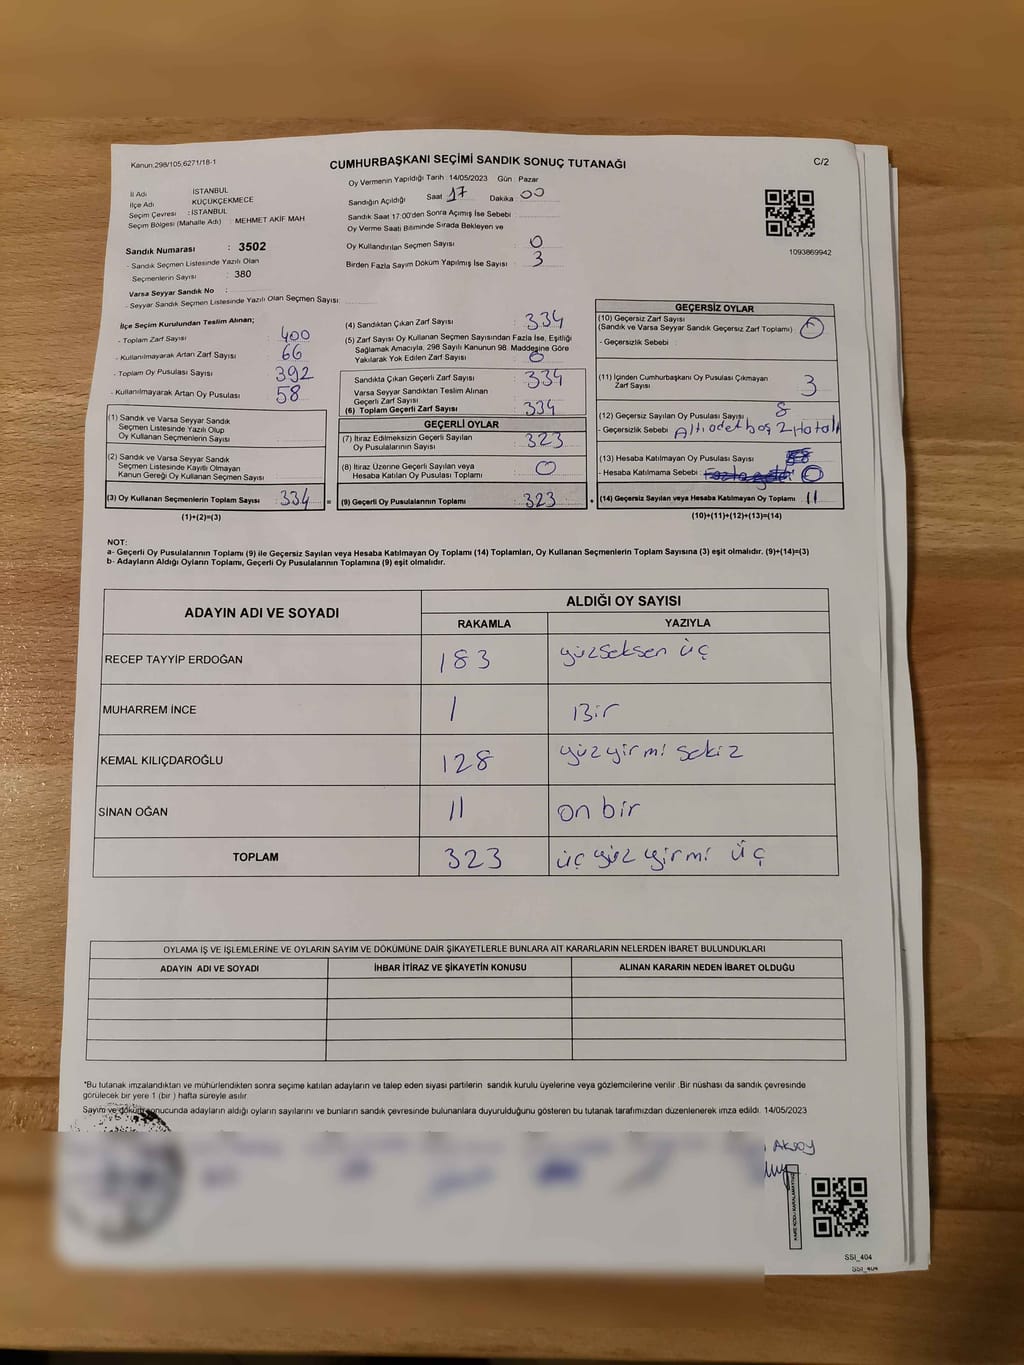 Kanun,298/105,6271/18-1
CUMHURBAŞKANI SEÇİMİ SANDIK SONUÇ TUTANAĞI
C/2
İl Adı : İSTANBUL
İlçe Adı : KÜÇÜKÇEKMECE
Seçim Çevresi : İSTANBUL
Seçim Bölgesi (Mahalle Adı) : MEHMET AKİF MAH
Sandık Numarası : 3502
- Sandık Seçmen Listesinde Yazılı Olan
Seçmenlerin Sayısı : 380
Varsa Seyyar Sandık No :
- Seyyar Sandık Seçmen Listesinde Yazılı Olan Seçmen Sayısı:
Oy Vermenin Yapıldığı Tarih :14/05/2023 Gün : Pazar
Sandığın Açıldığı Saat 17 Dakika 00
Sandık Saat 17:00'den Sonra Açımış İse Sebebi :
Oy Verme Saati Bitiminde Sırada Bekleyen ve
Oy Kullandırılan Seçmen Sayısı : 0
Birden Fazla Sayım Döküm Yapılmış İse Sayısı : 3
1093869942
İlçe Seçim Kurulundan Teslim Alınan;
- Toplam Zarf Sayısı : 400
- Kullanılmayarak Artan Zarf Sayısı : 66
- Toplam Oy Pusulası Sayısı : 392
- Kullanılmayarak Artan Oy Pusulası : 58
(1) Sandık ve Varsa Seyyar Sandık
Seçmen Listesinde Yazılı Olup
Oy Kullanan Seçmenlerin Sayısı :
(2) Sandık ve Varsa Seyyar Sandık
Seçmen Listesinde Kayıtlı Olmayan
Kanun Gereği Oy Kullanan Seçmen Sayısı :
(3) Oy Kullanan Seçmenlerin Toplam Sayısı : 334 =
(1)+(2)=(3)
(4) Sandıktan Çıkan Zarf Sayısı : 334
(5) Zarf Sayısı Oy Kullanan Seçmen Sayısından Fazla İse, Eşitliği
Sağlamak Amacıyla, 298 Sayılı Kanunun 98. Maddesine Göre
Yakılarak Yok Edilen Zarf Sayısı : 0
Sandıkta Çıkan Geçerli Zarf Sayısı : 334
Varsa Seyyar Sandıktan Teslim Alınan
Geçerli Zarf Sayısı :
(6) Toplam Geçerli Zarf Sayısı : 334
GEÇERLİ OYLAR
(7) İtiraz Edilmeksizin Geçerli Sayılan
Oy Pusulalarının Sayısı : 323
(8) İtiraz Üzerine Geçerli Sayılan veya
Hesaba Katılan Oy Pusulaları Toplamı : 0
(9) Geçerli Oy Pusulalarının Toplamı : 323 +
GEÇERSİZ OYLAR
(10) Geçersiz Zarf Sayısı
(Sandık ve Varsa Seyyar Sandık Geçersiz Zarf Toplamı) : 0
- Geçersizlik Sebebi :
(11) İçinden Cumhurbaşkanı Oy Pusulası Çıkmayan
Zarf Sayısı : 3
(12) Geçersiz Sayılan Oy Pusulası Sayısı : 8
- Geçersizlik Sebebi : Altı adet boş 2 Hatalı
(13) Hesaba Katılmayan Oy Pusulası Sayısı :
- Hesaba Katılmama Sebebi : 0
(14) Geçersiz Sayılan veya Hesaba Katılmayan Oy Toplamı : 11
(10)+(11)+(12)+(13)=(14)
NOT:
a- Geçerli Oy Pusulalarının Toplamı (9) ile Geçersiz Sayılan veya Hesaba Katılmayan Oy Toplamı (14) Toplamları, Oy Kullanan Seçmenlerin Toplam Sayısına (3) eşit olmalıdır. (9)+(14)=(3)
b- Adayların Aldığı Oyların Toplamı, Geçerli Oy Pusulalarının Toplamına (9) eşit olmalıdır.
ADAYIN ADI VE SOYADI
ALDIĞI OY SAYISI
RAKAMLA YAZIYLA
RECEP TAYYİP ERDOĞAN 183 yüzseksen üç
MUHARREM İNCE 1 Bir
KEMAL KILIÇDAROĞLU 128 yüzyirmi sekiz
SİNAN OĞAN 11 on bir
TOPLAM 323 üç yüz yirmi üç
OYLAMA İŞ VE İŞLEMLERİNE VE OYLARIN SAYIM VE DÖKÜMÜNE DAİR ŞİKAYETLERLE BUNLARA AİT KARARLARIN NELERDEN İBARET BULUNDUKLARI
ADAYIN ADI VE SOYADI İHBAR İTİRAZ VE ŞİKAYETİN KONUSU ALINAN KARARIN NEDEN İBARET OLDUĞU
*Bu tutanak imzalandıktan ve mühürlendikten sonra seçime katılan adayların ve talep eden siyasi partilerin sandık kurulu üyelerine veya gözlemcilerine verilir .Bir nüshası da sandık çevresinde
görülecek bir yere 1 (bir ) hafta süreyle asılır.
Sayım ve döküm sonucunda adayların aldığı oyların sayılarını ve bunların sandık çevresinde bulunanlara duyurulduğunu gösteren bu tutanak tarafımızdan düzenlenerek imza edildi. 14/05/2023
Aksoy
KARE KODU KARALAMAYINIZ
SSI_404
SSI_404